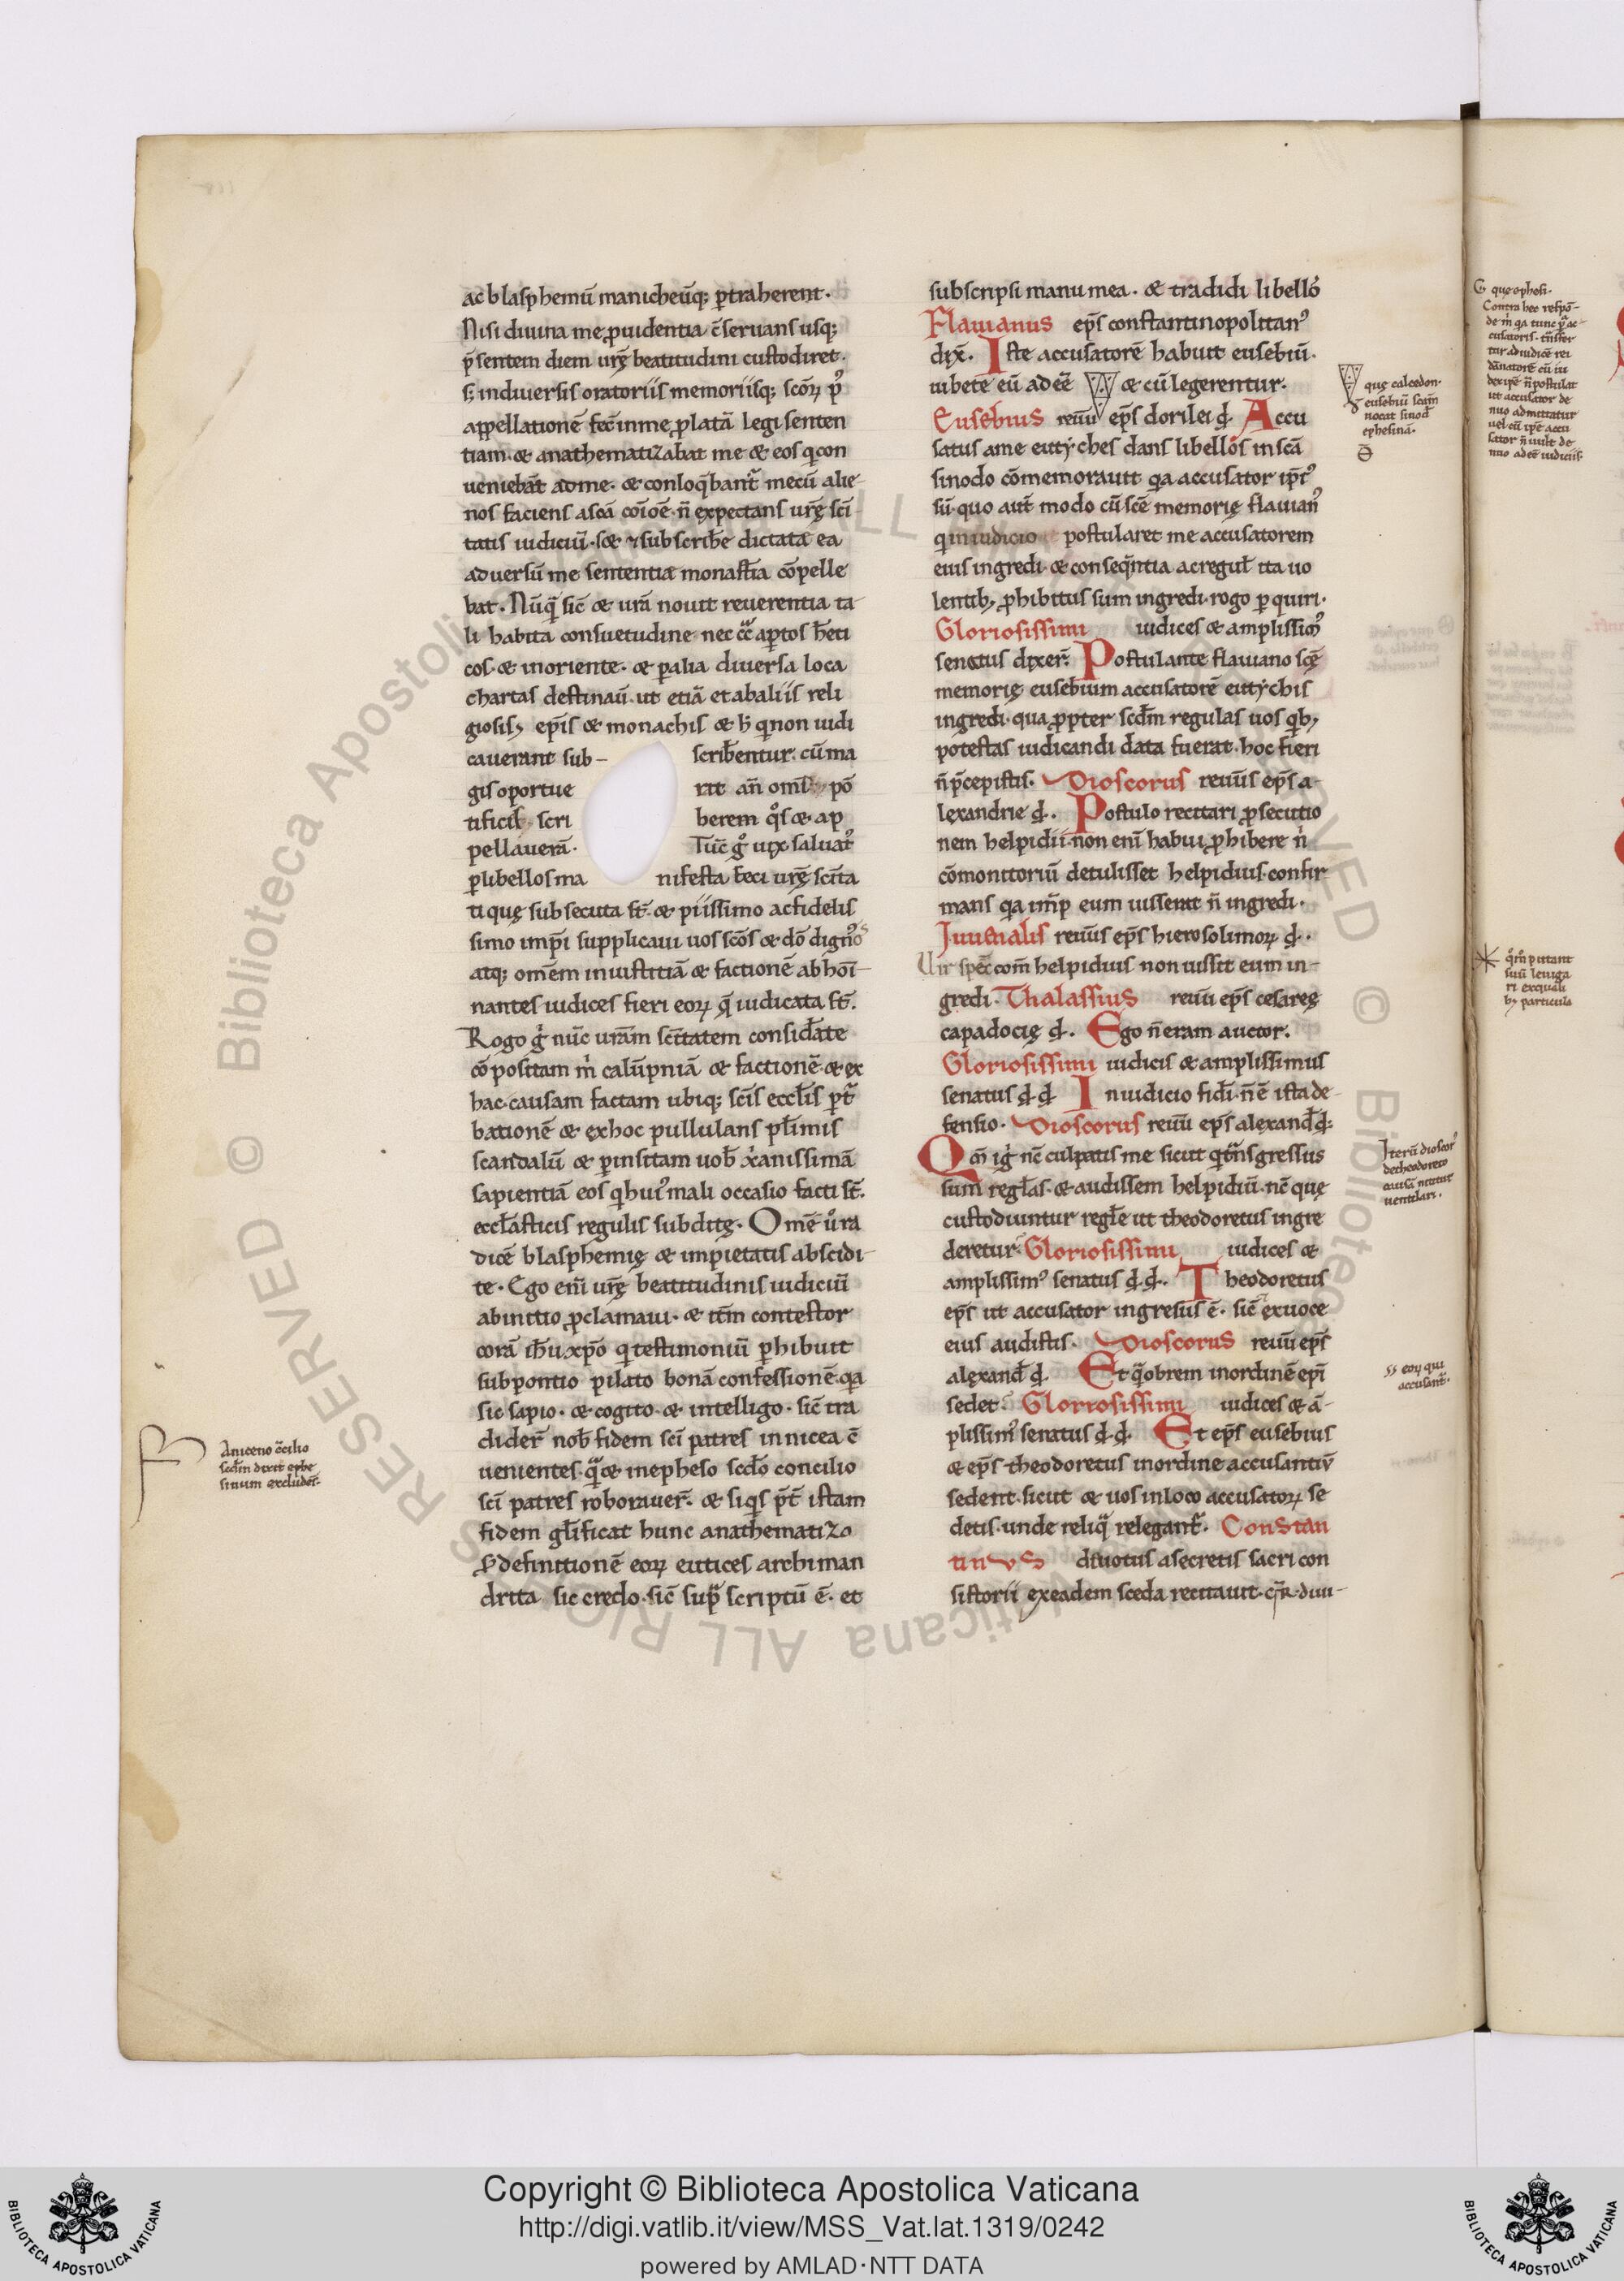 ac blasphemū manicheūq; ꝑtraherent.
Nisi diuina me ꝓuidentia c̄seruans usq;
p̄sentem diem urę̄ beatitudini custodiret.
s; in diuersis oratoriis memoriisq; scōꝝ pꝰ
appellationē fec̄ in me ꝓlatā legi senten
tiam. & anathematizabat me & eos q con
ueniebāt ad me. & conloq̄bant᷑ mecū alie
nos faciens a scā cōiōē. n̄ expectans urę̄ sci
tatis iudiciū. s& & subscribe dictata ea
aduersū me sententia monast̄ia cōpelle
bat. Nūq̄ sic̄ & urā nouit reuerentia ta
li habita consuetudine nec
cos. & in oriente. & ꝑ alia diuersa loca
chartas destinaū. ut etiā et ab aliis reli
giosis, ep̄is & monachis & h̄ q non iudi
cauerant sub- scribentur. cū ma
gis oportue rit an̄ pō
tific scri berem q̊s & ap
pellauerā. Tūc g̊ uix saluatꝰ
ꝑ libellos ma nifesta feci urę̄ sc̄ita
ti quę subsecuta st̄. & piissimo ac fidelis
simo imp̄i supplicaui uos scōs & dō dignꝰ
atq; om̄em iniustitiā & factionē abhoī
nantes iudices fieri eoꝝ q̄ iudicata st̄.
Rogo g̊ nūc urām sc̄itatem considāte
cōpositam m̊ calūpniā & factionē & ex
hac causam factam ubiq; scīs eccl̄is
bationē & ex hoc pullulans pl̄imis
scandalū & ꝑ insitam uob̄ xp̄anissimā
sapientiā eos q huiꝰ mali occasio facti st̄.
eccl̄asticis regulis subditę. Omē u̇ra
dicē blasphemię & impietatis abscidi-
te. Ego enī urę̄ beatitudinis iudiciū
ab initio ꝓclamaui. & it̄m contestor
corā ih̄u xp̄o q testimoniū ꝑhibuit
sub pontio pilato bonā confessionē. qa
sic sapio. & cogito. & intelligo. sic̄ tra
dider̄ nob̄ fidem scī patres in nicea c̄
uenientes. q̄ & in epheso scd̄o concilio
scī patres roborauer̄. & siqs p̄t̄ istam
fidem gl̄ificat hunc anathematizo
s̄ definitionē eoꝝ eutices archiman
drita sic credo. sic̄ sup̄ scriptū ē. et
A niceno c̄cilio
scd̄m dixit ephe
sinum excluden̄.
subscripsi manu mea. & tradidi libello
Flauianus ep̄s constantinopolitanꝰ
dix̄. Iste accusatorē habuit eusebiū.
iubete eū adeē & cū legerentur.
Eusebius reuū ep̄s dorilei đ. Accu
satus a me euty·ches dans libellos in scā
sinodo cōmemorauit qa accusator ip̄iꝰ
sū. quo aut̄ modo cū scē memorię flauianꝰ
q in iudicio postularet me accusatorem
eius ingredi. & conseq̄ntia ac regul̄ ita uo
lentib; ꝓhibitus sum ingredi. rogo ꝑquiri.
Gloriosissimi iudices & amplissimꝰ
senatus dixer̄. Postulante flauiano scę̄
memorię eusebium accusatorē eutychis
ingredi. qua ꝓpter scd̄m regulas uos qb;
potestas iudicandi data fuerat. hoc fieri
n̄ p̄cepistis. Dioscorus reuūs ep̄s a-
lexandrie đ. Postulo recitari ꝓsecutio
nem helpidii. non enī habui ꝓhibere n̊
cōmonitoriū detulisset helpidius. confir
mans qa imp̄ eum iusserat n̄ ingredi.
Iuuenalis reuūs ep̄s hierosolimoꝝ đ.
Uir spec̄ com̄ helpidius non iussit eum in-
gredi. Thalassius reuū ep̄s cesaree
capadocię đ. Ego n̄ eram auctor.
Gloriosissimi iudicis & amplissimus
senatus đ đ In iudicio fidī. n̄ ē ista de-
fensio. Dioscorus reuū ep̄s alexanđ đ:
Qm̄ ig̊ nc̄ culpatis me sicut q t̄nsgressus
sum regl̄as. & audissem helpidiū. nc̄ quę
custodiuntur regl̄e ut theodoretus ingre
deretur. Gloriosissimi iudices &
amplissimꝰ senatus đ.đ. Theodoretus
ep̄s ut accusator ingresus ē. sic̄ ex uoce
eius audistis. Dioscorus reuū ep̄s
alexanđ đ. Et q̄obrem in ordinē ep̄i
sedet. Gloriosissimi iudices & ā-
plissimꝰ senatus đ đ. Et ep̄s eusebius
& ep̄s theodoretus in ordine accusantiū
sedent. sicut & uos in loco accusatoꝝ se
detis. unde reliq̄ relegant᷑. Constan
tinus deuotus a secretis sacri con
sistorii ex eadem sceda recitauit. diui-
que calcedon.
eusebiū scām
uocat sinod̄
ephesinā.
Iterū dioscorꝰ
de theodoreto
causā nititur
uentilari.
ss eoꝝ qui
accusant᷑.
G que ephesi.
Contra heo respō-
de m̊ qa tunc ꝑ ac-
cusatoris. t̄nsfer
tur ad iudicē rei
dānatorē cū iu
dex ip̄e n̄ postulat
ut accusator de
nuo admittatur
uel cū ip̄e accu
sator n̄ uult de
nuo adeē iudiciis.
putant
suū leuiga
ri ex quali
b; particula
Copyright © Biblioteca Apostolica Vaticana
http://digi.vatlib.it/view/MSS_Vat.lat.1319/0242
powered by AMLAD·NTT DATA
BIBLIOTECA APOSTOLICA VATICANA
BIBLIOTECA APOSTOLICA VATICANA
© Biblioteca Apostolica Vaticana ALL RIGHTS RESERVED